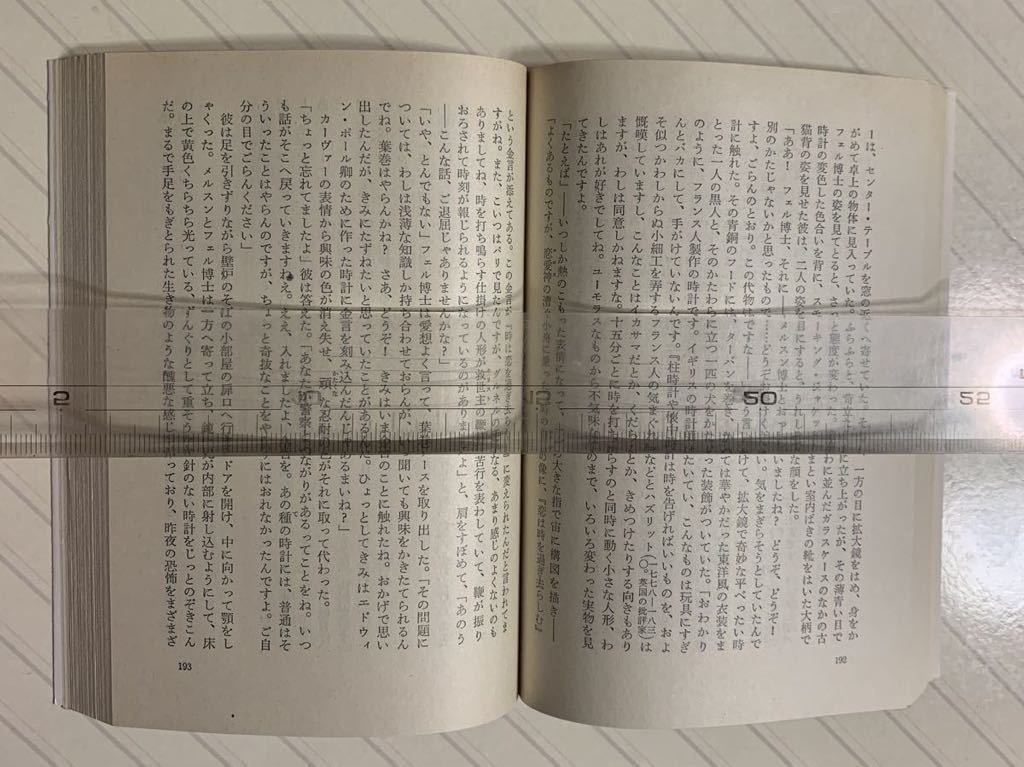 ーは、センター・テーブルを窓の近くへ寄せていた。 一方の目に拡大鏡をはめ、身をか
がめて卓上の物体に見入っていた。ふらふらと、 に立ち上がったが、その薄青い目で
フェル博士の姿を見てとると、さっと態度が変わった。 わに並んだガラスケースのなかの古
時計の変色した色合いを背に、スモーキング・ジャケッ まとい室内ばきの靴をはいた大柄で
猫背の姿を見せた彼は、二人の姿を目にすると、うれし な顔をした。
「ああ! フェル博士、それに――メルスン博士と いましたね? どうぞ、どうぞ!
別のかたじゃないかと思ったもので……どうぞお い。気をまぎらそうとしていたんで
すよ、ごらんのとおり。この代物はですな―― けて、拡大鏡で奇妙な平べったい時
計に触れた。その青銅のフードには、ターバンを巻き、かつては華やかだった東洋風の衣装をま
とった一人の黒人と、そのかたわらに立つ一匹の犬をかたどった装飾がついていた。「おわかり
のように、フランス人製作の時計です。イギリスの時計 たいてい、こんなものは玩具にすぎ
んとバカにして、手がけていないんです。『柱時計や懐中時計は時を告げればいいものを、およ
そ似つかわしからぬ小細工を弄するフランス人の気まぐれ』などとハズリット(一七七八―一八三〇。英国の批評家)は
慨嘆していますし、こんなことはイカサマだとか、くだらんとか、きめつけたりする向きもあり
ますが、わしは同意しかねますな。十五分ごとに時を打ち鳴らすのと同時に動く小さな人形、わ
しはあれが好きでしてね。ユーモラスなものから不気味なものまで、いろいろ変わった実物を見
てきたんですよ。
「たとえば」――いつしか熱のこもった表情になって、 大きな指で宙に構図を描き――
「よくあるものですが、恋愛神の 小舟に乗った 像に、『恋は時を過ぎ去らしむ』
192
という金言が添えてある。この金言が『時は恋を過ぎ去 』に変えられたんだと言われてま
すがね。また、こいつはパリで見たんですが、グルネルの なる、あまり感じのよくないのも
ありましてね、時を打ち鳴らす仕掛けの人形が救世主の 苦行を表わしていて、鞭が振り
おろされて時刻が報じられるようになっているのがあります よ」と、肩をすぼめて、「あのう
――こんな話、ご退屈じゃありませんかな?」
「いや、とんでもない」フェル博士は愛想よく言って、葉巻ケースを取り出した。「その問題に
ついては、わしは浅薄な知識しか持ち合わせておらんが、いつ聞いても興味をかきたてられるん
でね。葉巻はやらんかね? さあ、どうぞ! きみはいま金言のことに触れたね。おかげで思い
出したんだが、きみにたずねたいと思っていたことがあるんだ。ひょっとしてきみはエドウィ
ン・ポール卿のために作った時計に金言を刻み込んだんじゃあるまいね?」
カーヴァーの表情から興味の色が消え失せ、頑な忍耐の色がそれに取って代わった。
「ちょっと忘れてましたよ」彼は答えた。「あなたが警察とつながりがあるってことをね。いつ
も話がそこへ戻っていきますねえ。ええ、入れましたよ、金言を。あの種の時計には、普通はそ
ういったことはやらんのですが、ちょっと奇抜なことをやらずにはおれなかったんですよ。ご自
分の目でごらんください」
彼は足を引きずりながら壁炉のそばの小部屋の扉口へ行き、ドアを開け、中に向かって顎をし
ゃくった。メルスンとフェル博士は一方へ寄って立ち、 が内部に射し込むようにして、床
の上で黄色くちらちら光っている、ずんぐりとして重そうな針のない時計をじっとのぞきこん
だ。まるで手足をもぎとられた生き物のような醜悪な感じ がっており、昨夜の恐怖をまざまざ
193
2
12
50
52